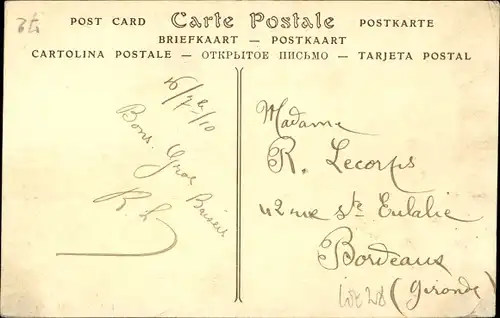 POST CARD Carte Postale POSTKARTE
BRIEFKAART — POSTKAART
CARTOLINA POSTALE — ОТКРЫТОЕ ПИСЬМО — TARJETA POSTAL
Bons Gros Baisers
R L
Madame
R. Lecorps
42 rue Ste Eulalie
Bordeaux
(Gironde)